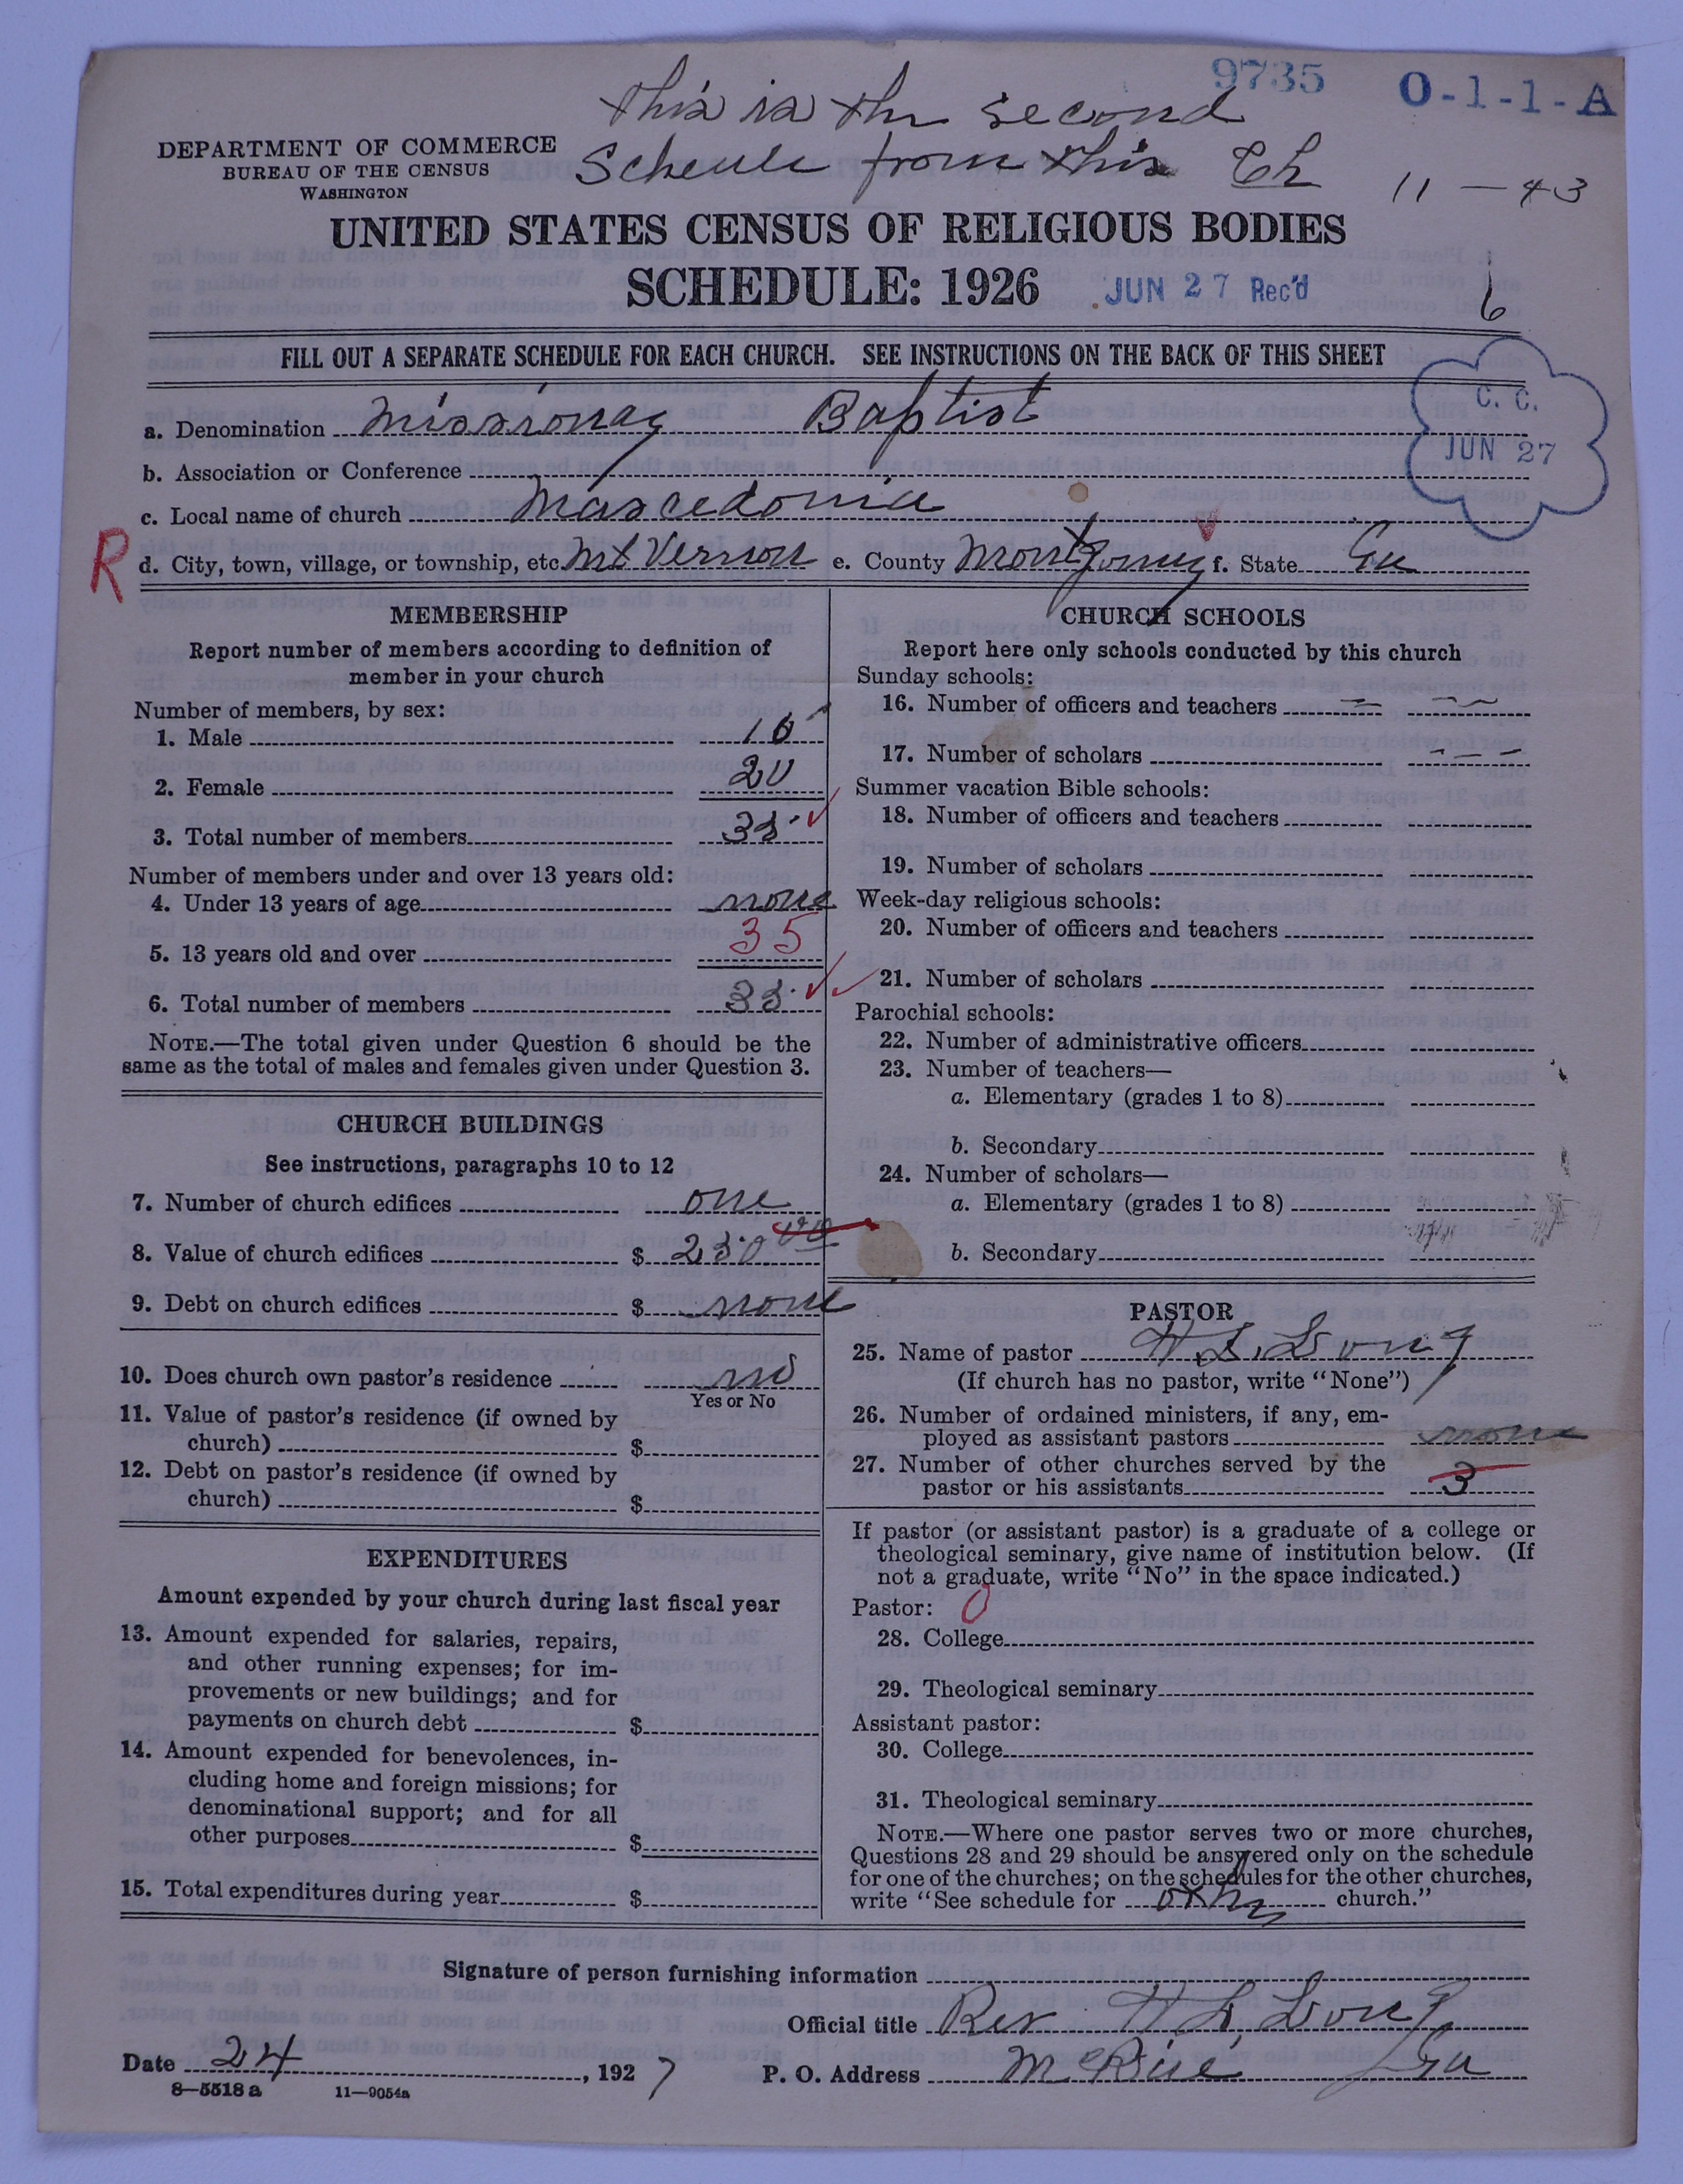 9735 O-1-1-A
this is the second
DEPARTMENT OF COMMERCE
BUREAU OF THE CENSUS
WASHINGTON
Scheule from this Ch 11-43
UNITED STATES CENSUS OF RELIGIOUS BODIES
SCHEDULE: 1926 JUN 27 Rec'd 6
FILL OUT A SEPARATE SCHEDULE FOR EACH CHURCH. SEE INSTRUCTIONS ON THE BACK OF THIS SHEET
C. C.
JUN 27
a. Denomination Missionay Baptist
b. Association or Conference
c. Local name of church Mascedonia
R d. City, town, village, or township, etc. Mt Vernon e. County f. State Ga
MEMBERSHIP
Report number of members according to definition of
member in your church
Number of members, by sex:
1. Male
2. Female 20
3. Total number of members 35
Number of members under and over 13 years old:
4. Under 13 years of age none
5. 13 years old and over 35
6. Total number of members 35
NOTE.—The total given under Question 6 should be the
same as the total of males and females given under Question 3.
CHURCH BUILDINGS
See instructions, paragraphs 10 to 12
7. Number of church edifices one
8. Value of church edifices $ 250 00
9. Debt on church edifices $ none
10. Does church own pastor's residence no
Yes or No
11. Value of pastor's residence (if owned by
church) $
12. Debt on pastor's residence (if owned by
church) $
EXPENDITURES
Amount expended by your church during last fiscal year
13. Amount expended for salaries, repairs,
and other running expenses; for im-
provements or new buildings; and for
payments on church debt $
14. Amount expended for benevolences, in-
cluding home and foreign missions; for
denominational support; and for all
other purposes $
15. Total expenditures during year $
CHURCH SCHOOLS
Report here only schools conducted by this church
Sunday schools:
16. Number of officers and teachers
17. Number of scholars
Summer vacation Bible schools:
18. Number of officers and teachers
19. Number of scholars
Week-day religious schools:
20. Number of officers and teachers
21. Number of scholars
Parochial schools:
22. Number of administrative officers
23. Number of teachers—
a. Elementary (grades 1 to 8)
b. Secondary
24. Number of scholars—
a. Elementary (grades 1 to 8)
b. Secondary
PASTOR
25. Name of pastor H. L. Long
(If church has no pastor, write "None")
26. Number of ordained ministers, if any, em-
ployed as assistant pastors none
27. Number of other churches served by the
pastor or his assistants 3
If pastor (or assistant pastor) is a graduate of a college or
theological seminary, give name of institution below. (If
not a graduate, write "No" in the space indicated.)
Pastor: 0
28. College
29. Theological seminary
Assistant pastor:
30. College
31. Theological seminary
NOTE.—Where one pastor serves two or more churches,
Questions 28 and 29 should be answered only on the schedule
for one of the churches; on the schedules for the other churches,
write "See schedule for other church."
Signature of person furnishing information
Official title Rev H L Long
Date 24, 1927 P. O. Address Ga
8-5518 a 11-9054a